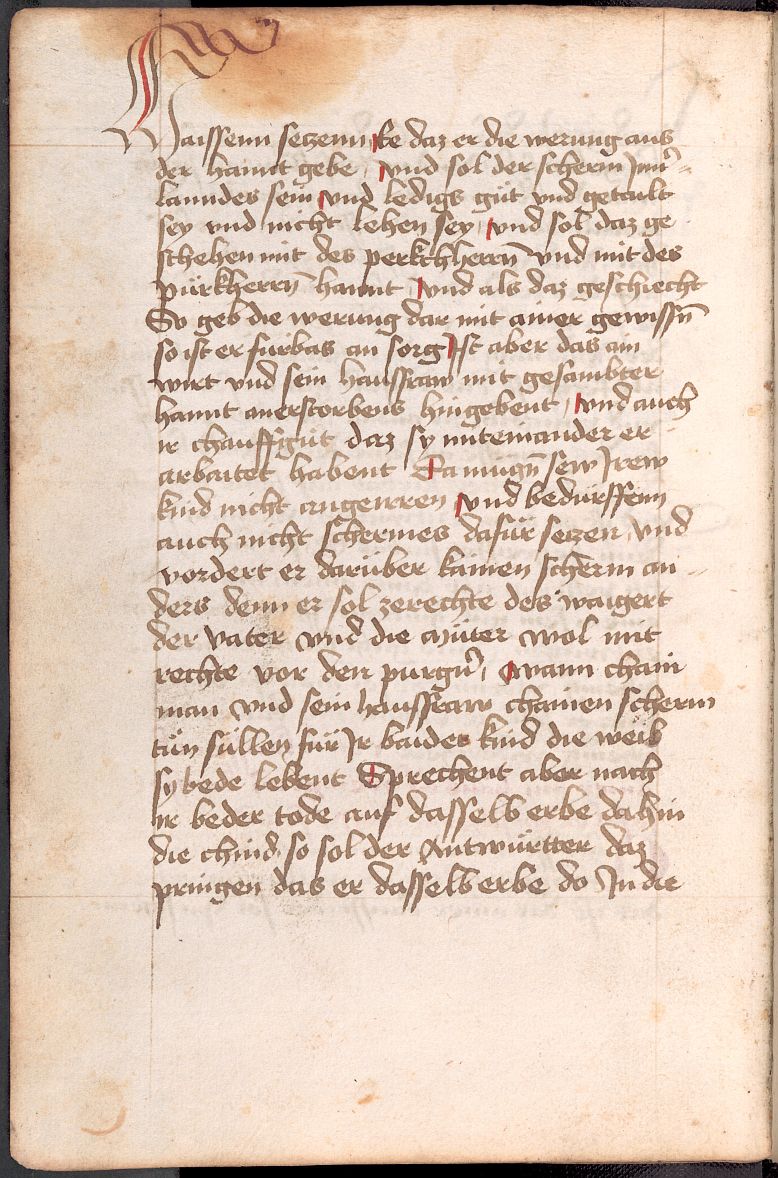 Waissenn seczenn Ee daz er die werung aus
der hannt gebe / vnd sol der scherm Inn
lanndes sein vnd ledigs güt vnd getailt
sey vnd nicht lehen sey / vnd sol daz ge
schehen mit des perkchherrn̄ vnd mit des
pürkherrn̄ hannt / vnd als daz geschiecht
So geb die werung dar mit ainer gewissn̄
so ist er fürbas an sorg Ist aber das ain
wirt vnd sein hausfraw mit gesambter
hannt anerstorbens hingebent / vnd auch
ir chauffgüt daz sy miteinander er
arbaitet habent Da mügn̄ sew Irew
kind nicht angeirren vnd bedürffenn
auch nicht schermes dafür seczen / vnd
vordert er darüber kainen scherm an
ders denn er sol zerechte des waigert
der vater vnd die müter wol mit
rechte vor den purgn̄ / wann chain
man vnd sein hausfraw chainen scherm
tün süllen für Ir baider kind die weil
sy bede lebent Sprechent aber nach
ir beder tode auf dasselb erbe dahin
die chind so sol der Antwürtter daz
pringen das er dasselb erbe do In die